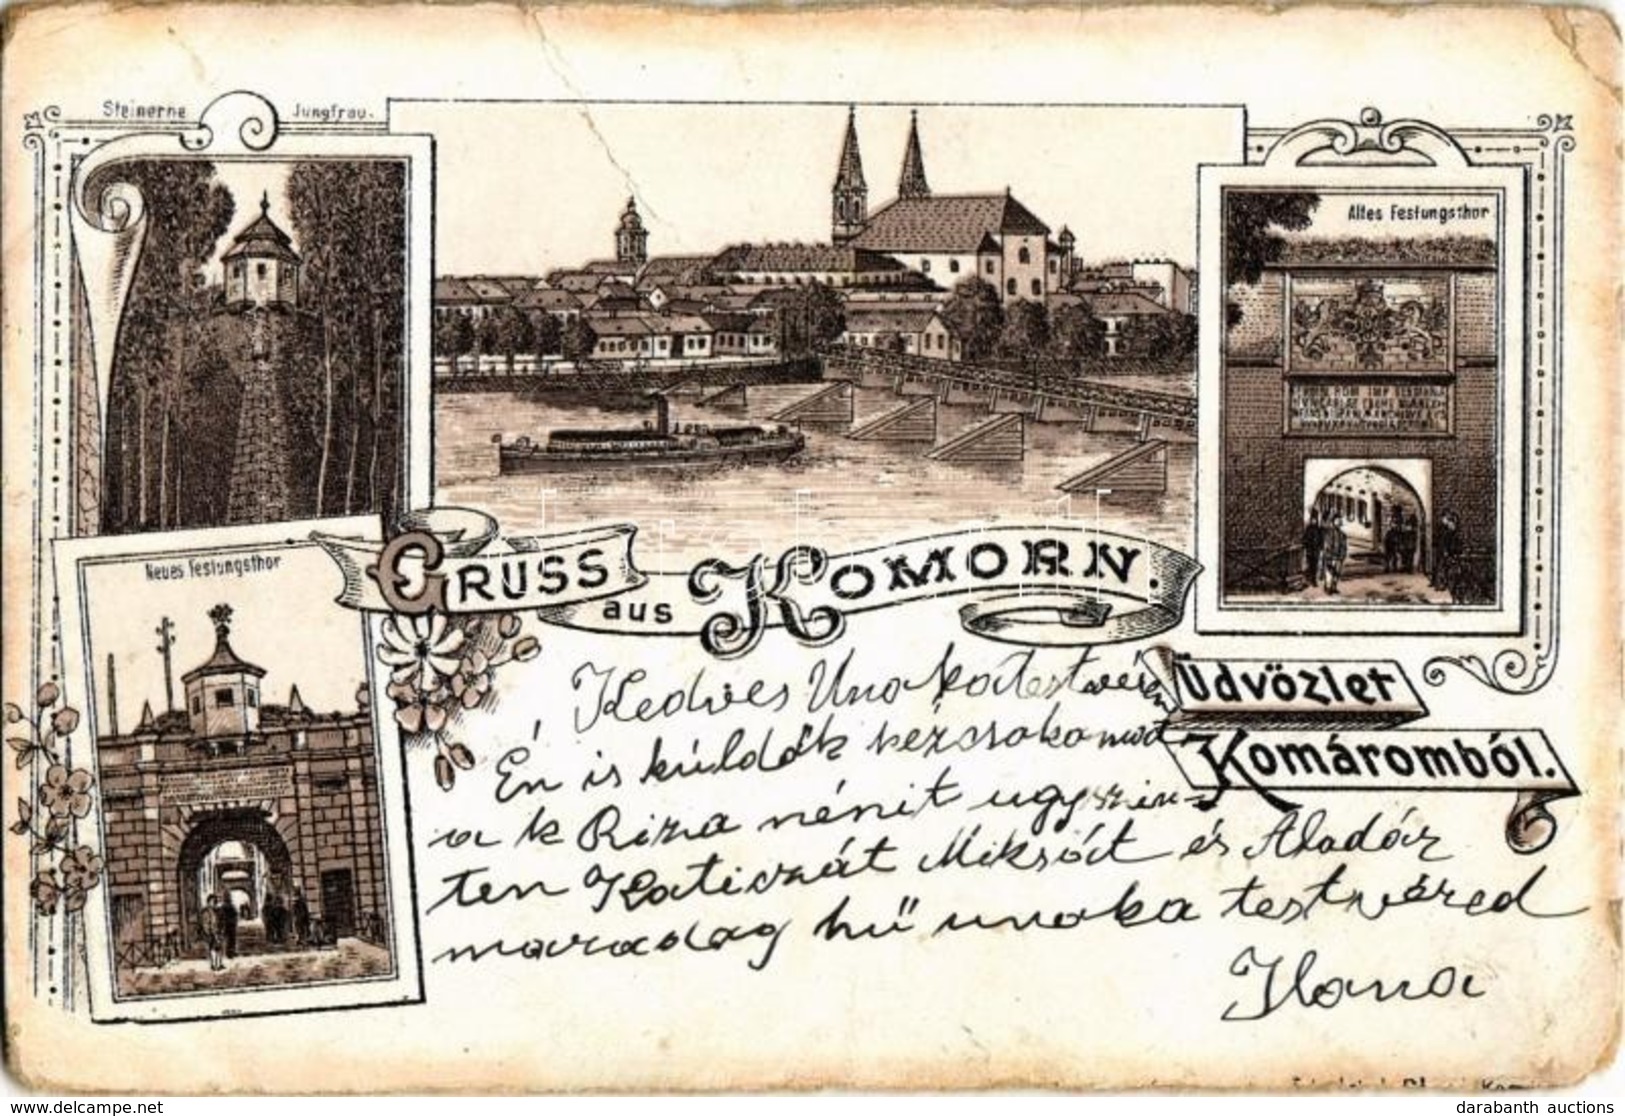 Steinerne Jungfrau.
Altes Festungsthor
Neues Festungsthor
GRUSS aus KOMORN.
Üdvözlet
Komáromból.
Kedves Unokatestvérem
Én is küldök kézcsokomat
a k Riza nénit ugyszin-
ten Katiczát Miksót és Aladár
maradag hű unoka testvéred
Ilona
delcampe.net
darabanth auctions